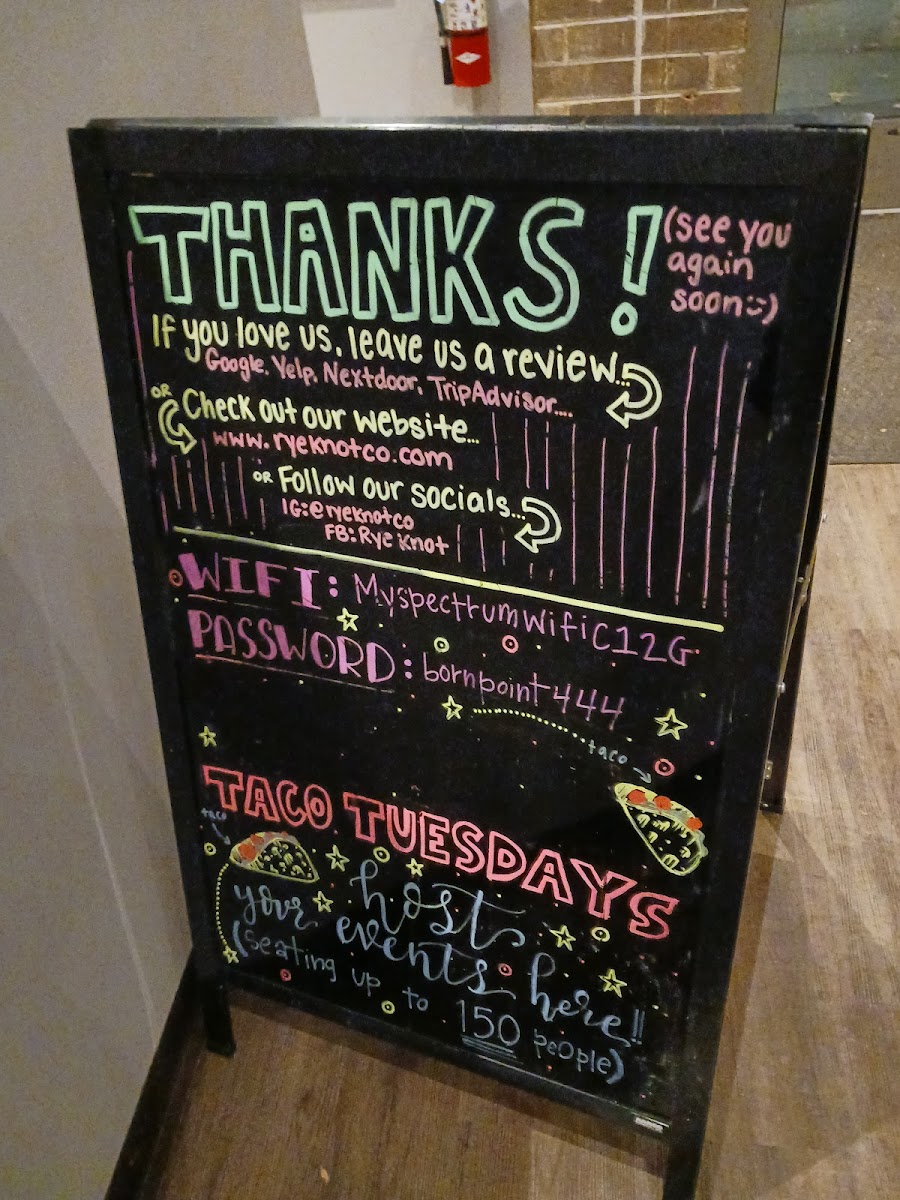 THANKS! (see you
again
soon:))
If you love us, leave us a review...
Google, Yelp, Nextdoor, TripAdvisor....
OR Check out our website...
www.ryeknotco.com
OR Follow our socials...
IG:@ryeknotco
FB: Rye Knot
WIFI: MyspectrumWifiC12G
PASSWORD: bornpoint444
taco
TACO TUESDAYS
taco
host
your events here!!
(seating up to 150 people)